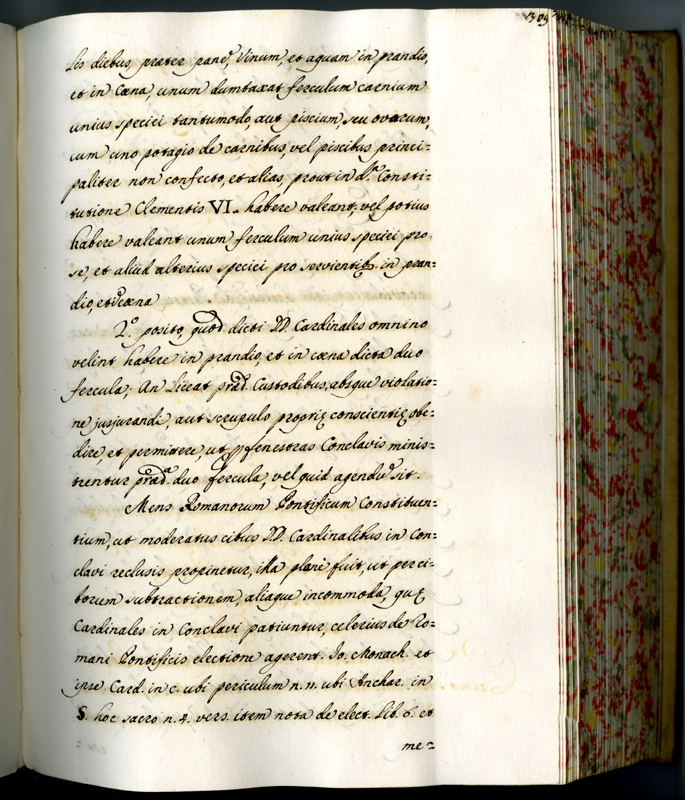 309
sis diebus, præter pané, Vinum, et aquam in prandio,
et in Cæna, unum dumtaxat ferculum carnium
unius speciei tantumodo, aut piscium, seu ovorum,
cum uno potagio de carnibus, vel piscibus princi=
paliter non confecto, et alias, prout in d.ᵃ Consti=
tutione Clementis VI. habere valeant, vel potius
habere valeant unum ferculum unius speciei pro
se, et aliud alterius speciei pro servientib. in pran=
dio, et cæna
2.º posito, quod dicti DD. Cardinales omnino
velint habere in prandio, et in cæna dicta duo
fercula; An Liceat præd. Custodibus, absque violatio=
ne jusjurandi, aut scrupulo propriæ conscientiæ obe=
dire, et permittere, ut p fenestras Conclavis minis=
trentur præd.ᵃ duo fercula, vel quid agendú sit.
Mens Romanorum Pontificum Constituen=
tium, ut moderatus cibus DD. Cardinalibus in Con=
clavi reclusis propinetur, illa plane fuit, ut per ci=
borum subtractionem, aliaque incommoda, quæ
Cardinales in Conclavi patiuntur, celerius de Ro=
mani Pontificis electione agerent. Jo. Monach. et
ipse Card. in c. ubi periculum n. 11. ubi Anchar. in
§. hoc sacro n. 4. vers. item nota de elect. Lib. 6. et
me=